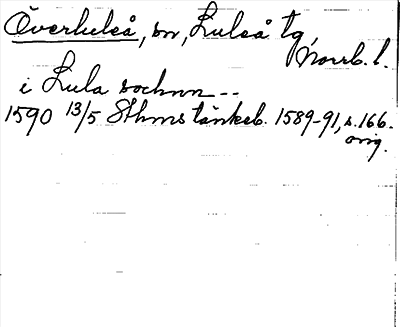 Överluleå, sn, Luleå tg,
Norrb. l.
i Lula sochnn --
1590 13/5 Sthms tänkeb. 1589-91, s. 166.
orig.